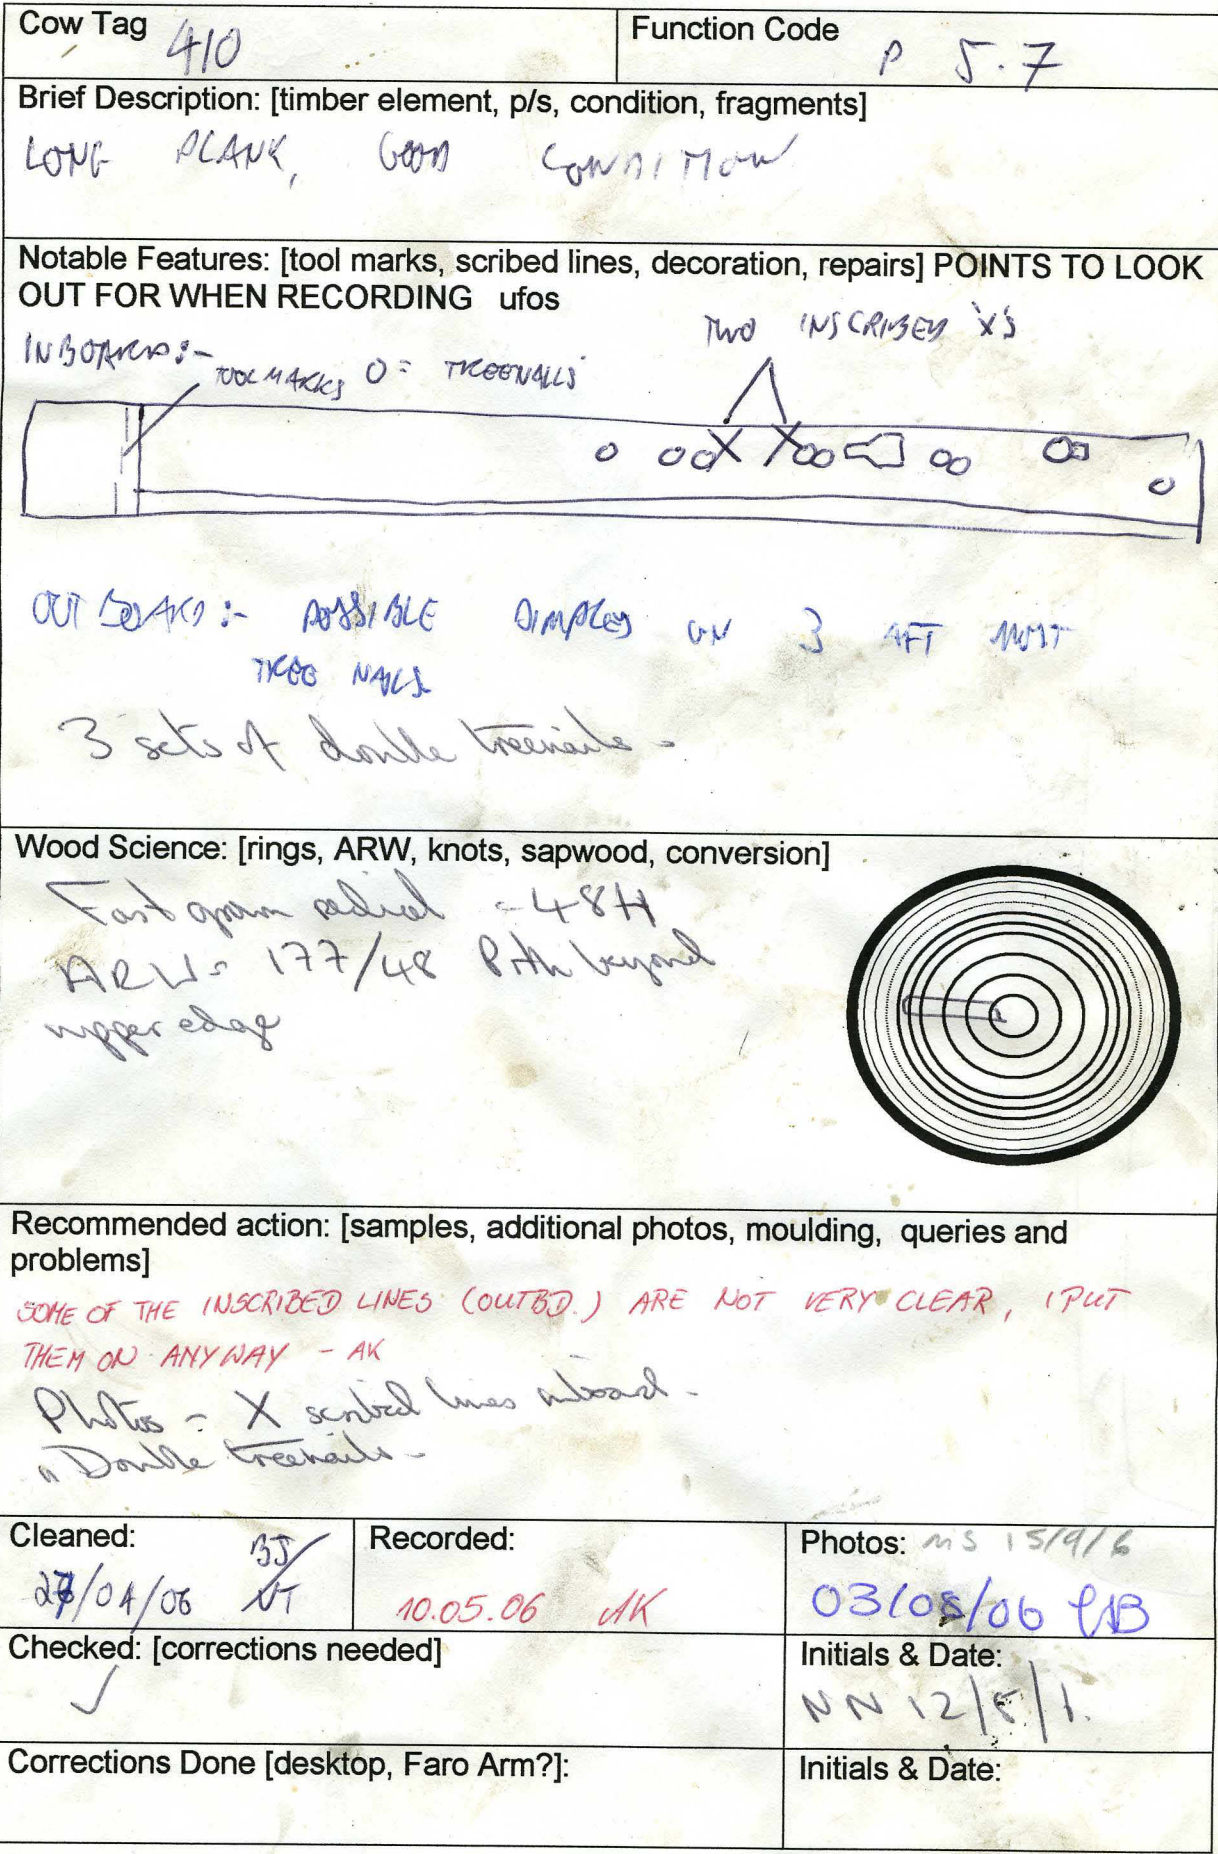 Cow Tag 410
Function Code P 5.7
Brief Description: [timber element, p/s, condition, fragments]
LONG PLANK, GOOD CONDITION
Notable Features: [tool marks, scribed lines, decoration, repairs] POINTS TO LOOK
OUT FOR WHEN RECORDING ufos
TWO INSCRIBED X'S
INBOARD:-
TOOL MARKS O = TREENAILS
OUTBOARD:- POSSIBLE DIMPLES ON 3 AFT MOST
TREE NAILS
3 sets of double treenails -
Wood Science: [rings, ARW, knots, sapwood, conversion]
Fast grown radial - 48H
ARW = 177/48 Pith beyond
upper edge
Recommended action: [samples, additional photos, moulding, queries and
problems]
SOME OF THE INSCRIBED LINES (OUTBD.) ARE NOT VERY CLEAR, I PUT
THEM ON ANYWAY - AK
Photos - X scribed lines inboard -
" Double treenails -
Cleaned: BJ/
/04/06 NT
Recorded:
10.05.06 AK
Photos: MS 15/9/6
03/05/06
Checked: [corrections needed]
✓
Initials & Date:
NN 12/5/
Corrections Done [desktop, Faro Arm?]:
Initials & Date: